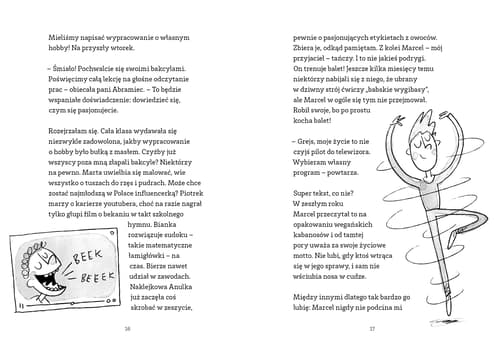 Mieliśmy napisać wypracowanie o własnym
hobby! Na przyszły wtorek.
– Śmiało! Pochwalcie się swoimi bakcylami.
Poświęcimy całą lekcję na głośne odczytanie
prac – obiecała pani Abramiec. – To będzie
wspaniałe doświadczenie: dowiedzieć się,
czym się pasjonujecie.
Rozejrzałam się. Cała klasa wydawała się
niezwykle zadowolona, jakby wypracowanie
o hobby było bułką z masłem. Czyżby już
wszyscy poza mną złapali bakcyle? Niektórzy
na pewno. Marta uwielbia się malować, wie
wszystko o tuszach do rzęs i pudrach. Może chce
zostać najmłodszą w Polsce influencerką? Piotrek
marzy o karierze youtubera, choć na razie nagrał
tylko głupi film o bekaniu w takt szkolnego
hymnu. Bianka
rozwiązuje sudoku –
takie matematyczne
łamigłówki – na
czas. Bierze nawet
udział w zawodach.
Naklejkowa Anulka
już zaczęła coś
skrobać w zeszycie,
BEEK
– BEEEK
16
pewnie o pasjonujących etykietach z owoców.
Zbiera je, odkąd pamiętam. Z kolei Marcel – mój
przyjaciel – tańczy. I to nie jakieś podrygi.
On trenuje balet! Jeszcze kilka miesięcy temu
niektórzy nabijali się z niego, że ubrany
w dziwny strój ćwiczy „babskie wygibasy”,
ale Marcel w ogóle się tym nie przejmował.
Robił swoje, bo po prostu
kocha balet!
– Grejs, moje życie to nie
czyjś pilot do telewizora.
Wybieram własny
program – powtarza.
Super tekst, co nie?
W zeszłym roku
Marcel przeczytał to na
opakowaniu wegańskich
kabanosów i od tamtej
pory uważa za swoje życiowe
motto. Nie lubi, gdy ktoś wtrąca
się w jego sprawy, i sam nie
wściubia nosa w cudze.
Między innymi dlatego tak bardzo go
lubię: Marcel nigdy nie podcina mi
17